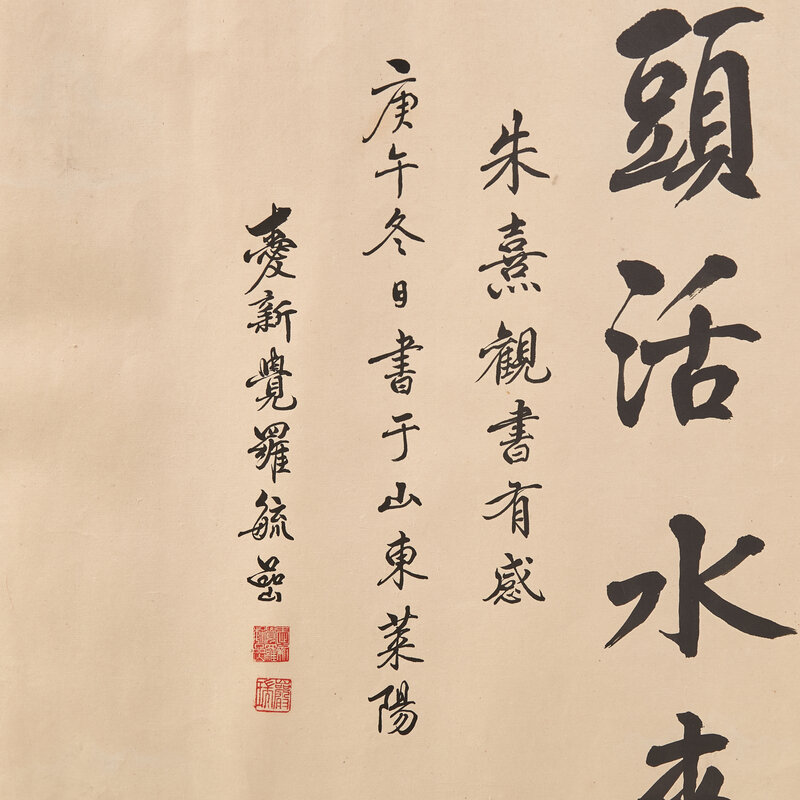 頭活水
朱熹觀書有感
庚午冬日書于山東萊陽
愛新覺羅毓嵒